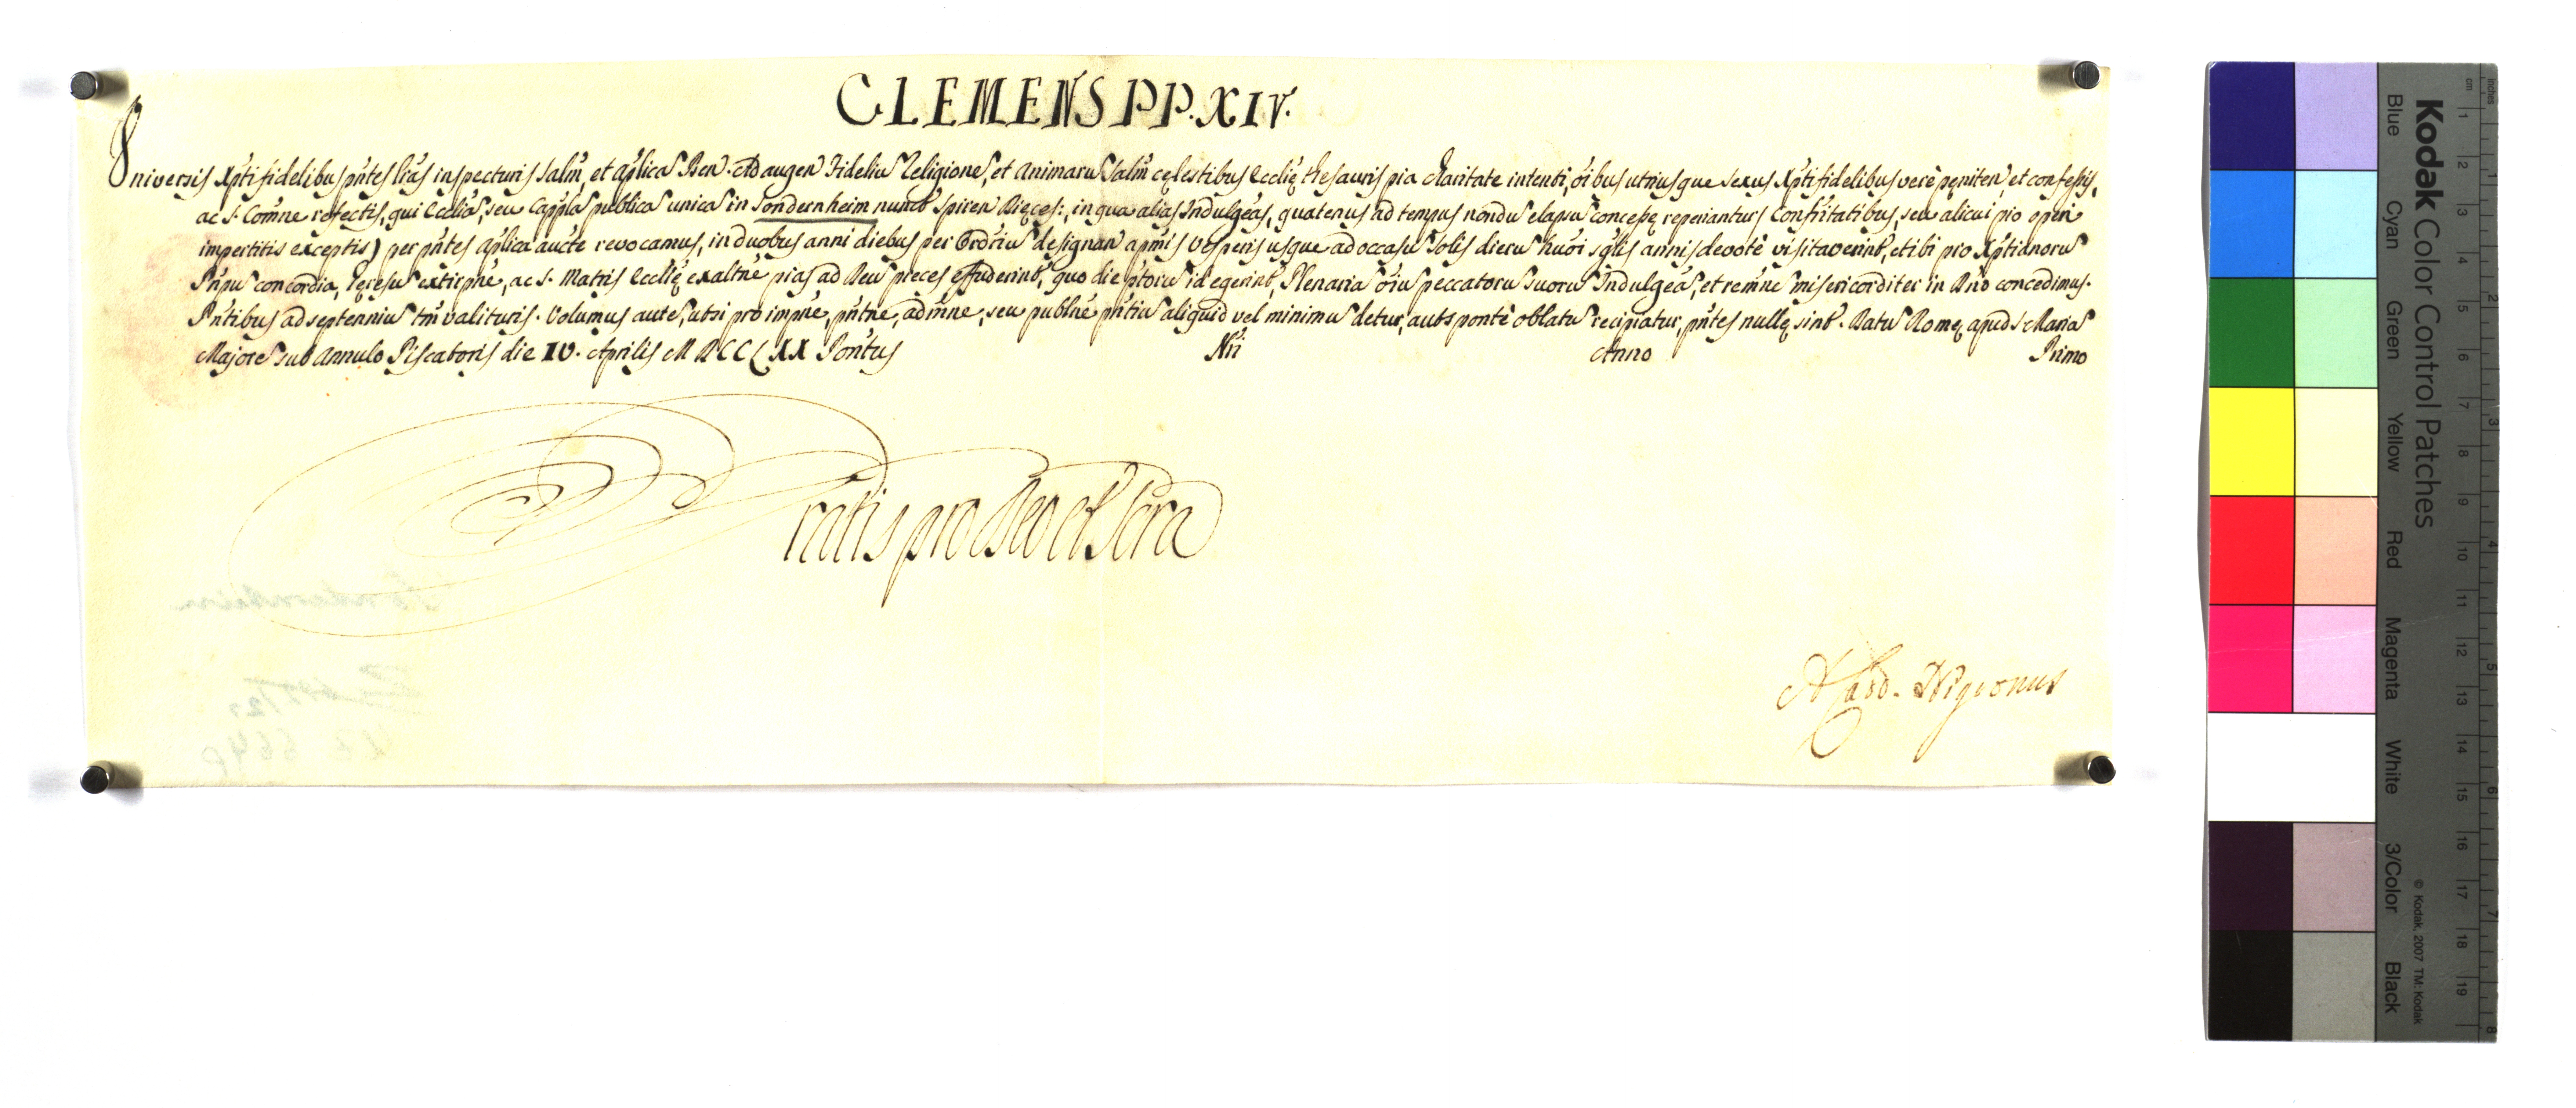 CLEMENS PP. XIV.
Universis Xpti fidelibus pñtes lras inspecturis Salm̃, et aplica Ben. Ad augen Fideliu Religione, et Animaru Salm̃ cęlestibus Ecclię thesauris pia charitate intenti, oibus utriusque sexus Xpti fidelibus verè pęniten et confessis,
ac S. Comñe refectis, qui Ecclia, seu Cappla publica unica in Sondernheim nuncō Spiren Dięces:, in qua alias Indulgeas, quatenus ad tempus nondu elapsu concessę reperiantur, Confrītatibus, seu alicui pio operi
impertitis exceptis) per pñtes aplica aucte revocamus, in duobus anni diebus per Ordriu designan apmis Vesperis usque ad occasu Solis dieru huoi sglis annis devotè visitaverint, et ibi pro Xptianoru
Pnpu concordia, hęresu extirpne, ac S. Matris Ecclię exaltne pias ad Deu preces effuderint, quo die ptoru id egerint, Plenaria oiu peccatoru suoru Indulgea, et remne misericorditer in Dño concedimus.
Pñtibus ad septenniu tm̃ valituris. Volumus aute, ut si pro impne, pñtne, admne, seu publne pñtiu aliquid vel minimu detur, aut sponte oblatu recipiatur, pñtes nullę sint. Datu Romę apud S. Maria
Majore sub Annulo Piscatoris die IV. Aprilis MDCCLXX Pontus Nri Anno Primo
Gratis pro Deo et Scra
A. Card. Nigronus